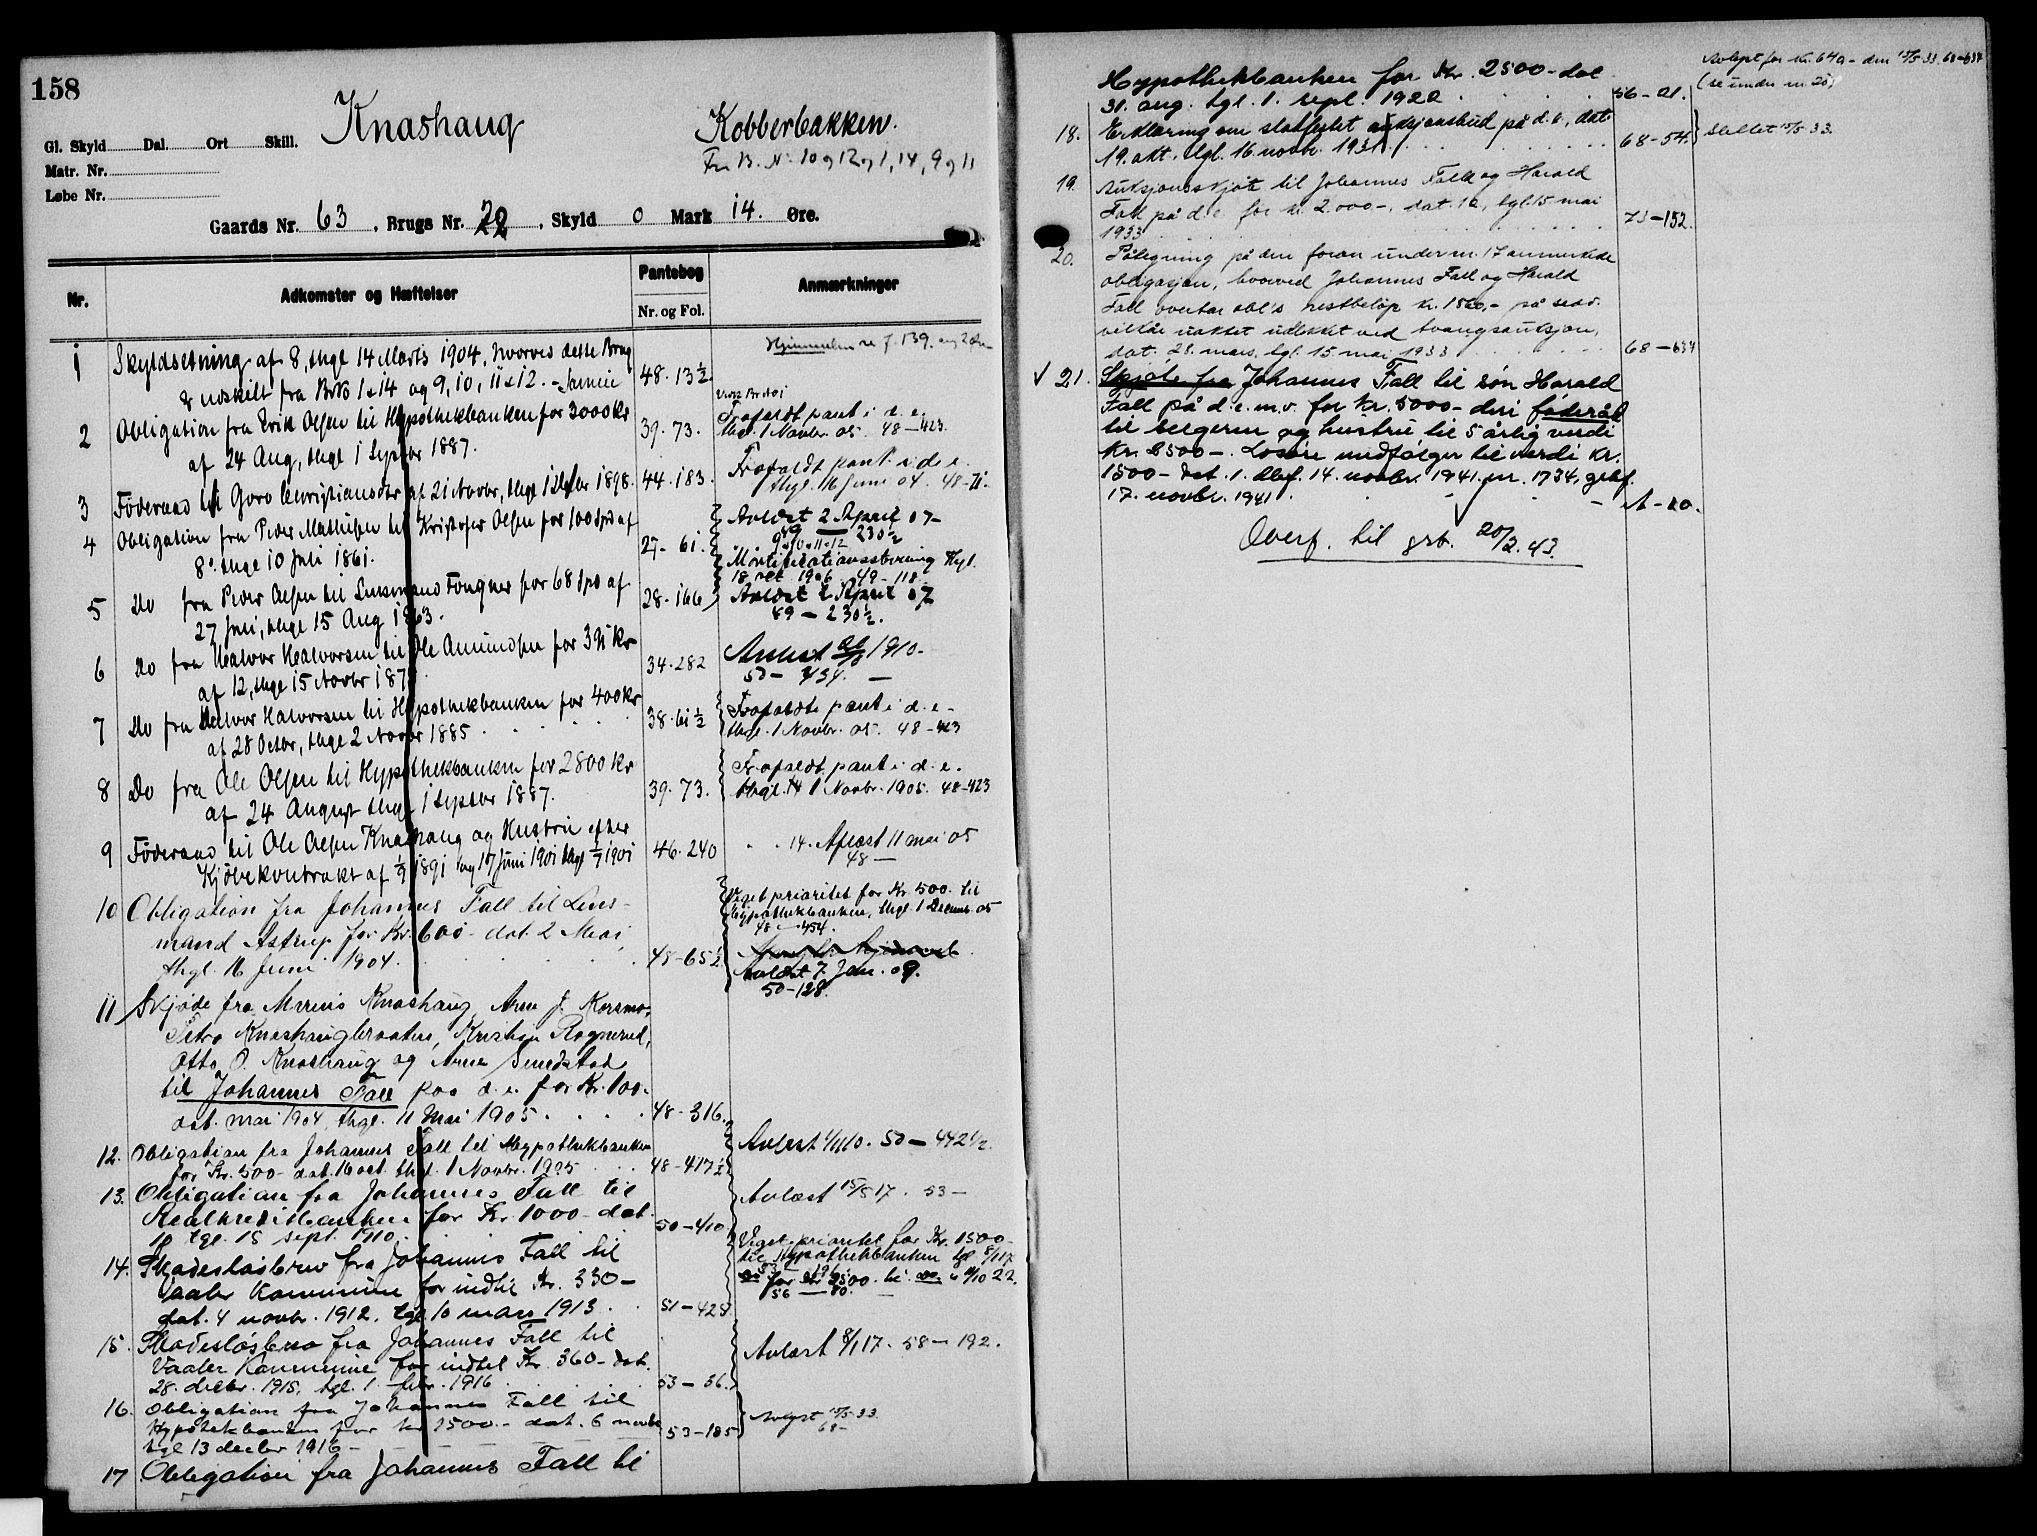 158
Knashaug Kobberbakken.
Fra B. Nr 10 og 12 og 1, 14, 9 og 11
Gl. Skyld Dal. Ort Skill.
Matr. Nr.
Løbe Nr.
Gaards Nr. 63, Brugs Nr. 22, Skyld 0 Mark 14. Øre.
Nr. Adkomster og Hæftelser Pantebog Anmærkninger
Nr. og Fol.
1 Skyldsetning af 8, thgl 14 Marts 1904, hvorved dette Brug
er udskilt fra BrNo 1 & 14 og 9, 10, 11 & 12. 48. 13½
2 Obligation fra Erik Olsen til Hypothekbanken for 3000 Kr
af 24 Aug, thgl 1 Septbr 1887. 39. 73.
Frafaldt pant i d. e.
thgl. 1 Novbr. 05. 48-423.
3 Föderaad til Goro Christiansdtr af 21 Novbr, thgl 1 Decbr 1898. 44. 183.
Frafaldt pant i d. e.
thgl. 16 Juni 04. 48-71.
4 Obligation fra Peder Mathisen til Kristofer Olsen for 100 Spd af
8. thgl 10 Juli 1861. 27-61.
Avlæst 2 April 07-
49 — 230½
Mortifikationsstevning thgl.
18 oct. 1906 49-118.
5 Do fra Peder Olsen til Lensmand Fougner for 68 Spd af
27 Juli, thgl 15 Aug 1863. 28. 166
Avlæst 2 April 07
49 — 230½.
6 Do fra Halvor Halvorsen til Ole Amundsen for 391 Kr
af 12, thgl 15 Novbr 187 34. 282
Avlæst 1910-
50 — 434. —
7 Do fra Halvor Halvorsen til Hypothekbanken for 400 Kr
af 28 Octbr, thgl 2 Novbr 1885 38. 61½
Frafaldt pant i d. e.-
thgl. 1 Novbr. 05. 48-423
8 Do fra Ole Olsen til Hypothekbanken for 2800 Kr
af 24 August thgl 1 Septbr 1887. 39. 73.
Frafaldt pant i d. e.
thgl. 1 Novbr. 1905. 48-423
9 Föderaad til Ole Olsen Knashaug og Hustru efter
Kjöbekontrakt af 1891 og 17 Juni 1901 thgl 1901 46. 240
14. Aflæst 11 mai 05
48 —
10 Obligation fra Johannes Fall til Lens-
mand Astrup for Kr. 600- dat. 2 Mai,
thgl. 16 Juni 1904. 48-65½
Veget prioritet for Kr 500. til
Hypothekbanken, thgl. 1 Decemb. 05
48 — 454.
Avlæst 7. Jan. 09.
50-128.
11 Skjøde fra Mirenis Knashaug, Arne J. Korsmo,
Petro Knashaugbraaten, Kristian Rognerud,
Otto O. Knashaug og Arne Smedstad
til Johannes Fall paa d. e. for Kr. 100.
dat. mai 1904, thgl. 11 Mai 1905 48-316.
12. Obligation fra Johannes Fall til Hypothekbanken
for Kr. 500- dat. 16 oct. thgl. 1 Novbr. 1905 48-417½
Avlæst 4/11 10. 50 — 442½.
13. Obligation fra Johannes Fall til
Realkreditbanken for Kr. 1000- dat.
tgl. 15 sept. 1910. 50-410.
Avlæst 15/5 17. 53 —
14. Skadesløsbrev fra Johannes Fall til
Vaaler Kommune for indtil Kr. 330-
dat. 4 novbr. 1912. tgl. 10 mars 1913. 51-428
Veget prioritet for Kr. 1500-
til Hypothekbanken tgl 8/1 17.
for Kr 2500. til do.
15. Skadesløsbrev fra Johannes Fall til
Vaaler Kommune for indtil Kr. 360- dat.
28. decbr. 1915, tgl. 1. febr. 1916 53-36.
Avlæst 8/1 17. 53 — 192.
16. Obligation fra Johannes Fall til
Hypotekbanken for kr 1500.- dat. 6 novbr
tgl 13 decbr 1916 — 53-185
Avlyst 15/5 33.
68 —
17 Obligation fra Johannes Fall til
Hypothekbanken for Kr. 2500- dat
31. aug. tgl. 1. sept. 1922 56-21.
Avlyst for kr. 640- den 15/5 33 68-634
(se under nr 20)
18. Erklæring om stadfestet auksjonsbud på d. e., dat.
19. okt. tgl. 16 novbr. 1931. 68-54.
Slettet 15/5 33.
19. Auksjonsskjøte til Johannes Fall og Harald
Fall på d. e. for kr. 2.000-, dat. 12, tgl. 15 mai
1933 73-152.
20. Påtegning på den foran under nr. 17 anmerkede
obligasjon, hvorved Johannes Fall og Harald
Fall overtar obl's restbeløp kr. 1860,- på sedv.
vilkår uaktet udekket ved tvangsauksjon,
dat. 28. mars, tgl. 15 mai 1933 68-634
√ 21. Skjøte fra Johannes Fall til søn Harald
Fall på d. e. m. v. for Kr. 5000- deri føderåd
til selgeren og hustru til 5 årlig verdi
Kr. 2500-. Løsøre medfølger til verdi Kr.
1500- dat. 1. dbf. 14. novbr. 1941. jnr. 1734, gebf.
17. novbr. 1941. A-20.
Overf. til grb. 20/2. 43.